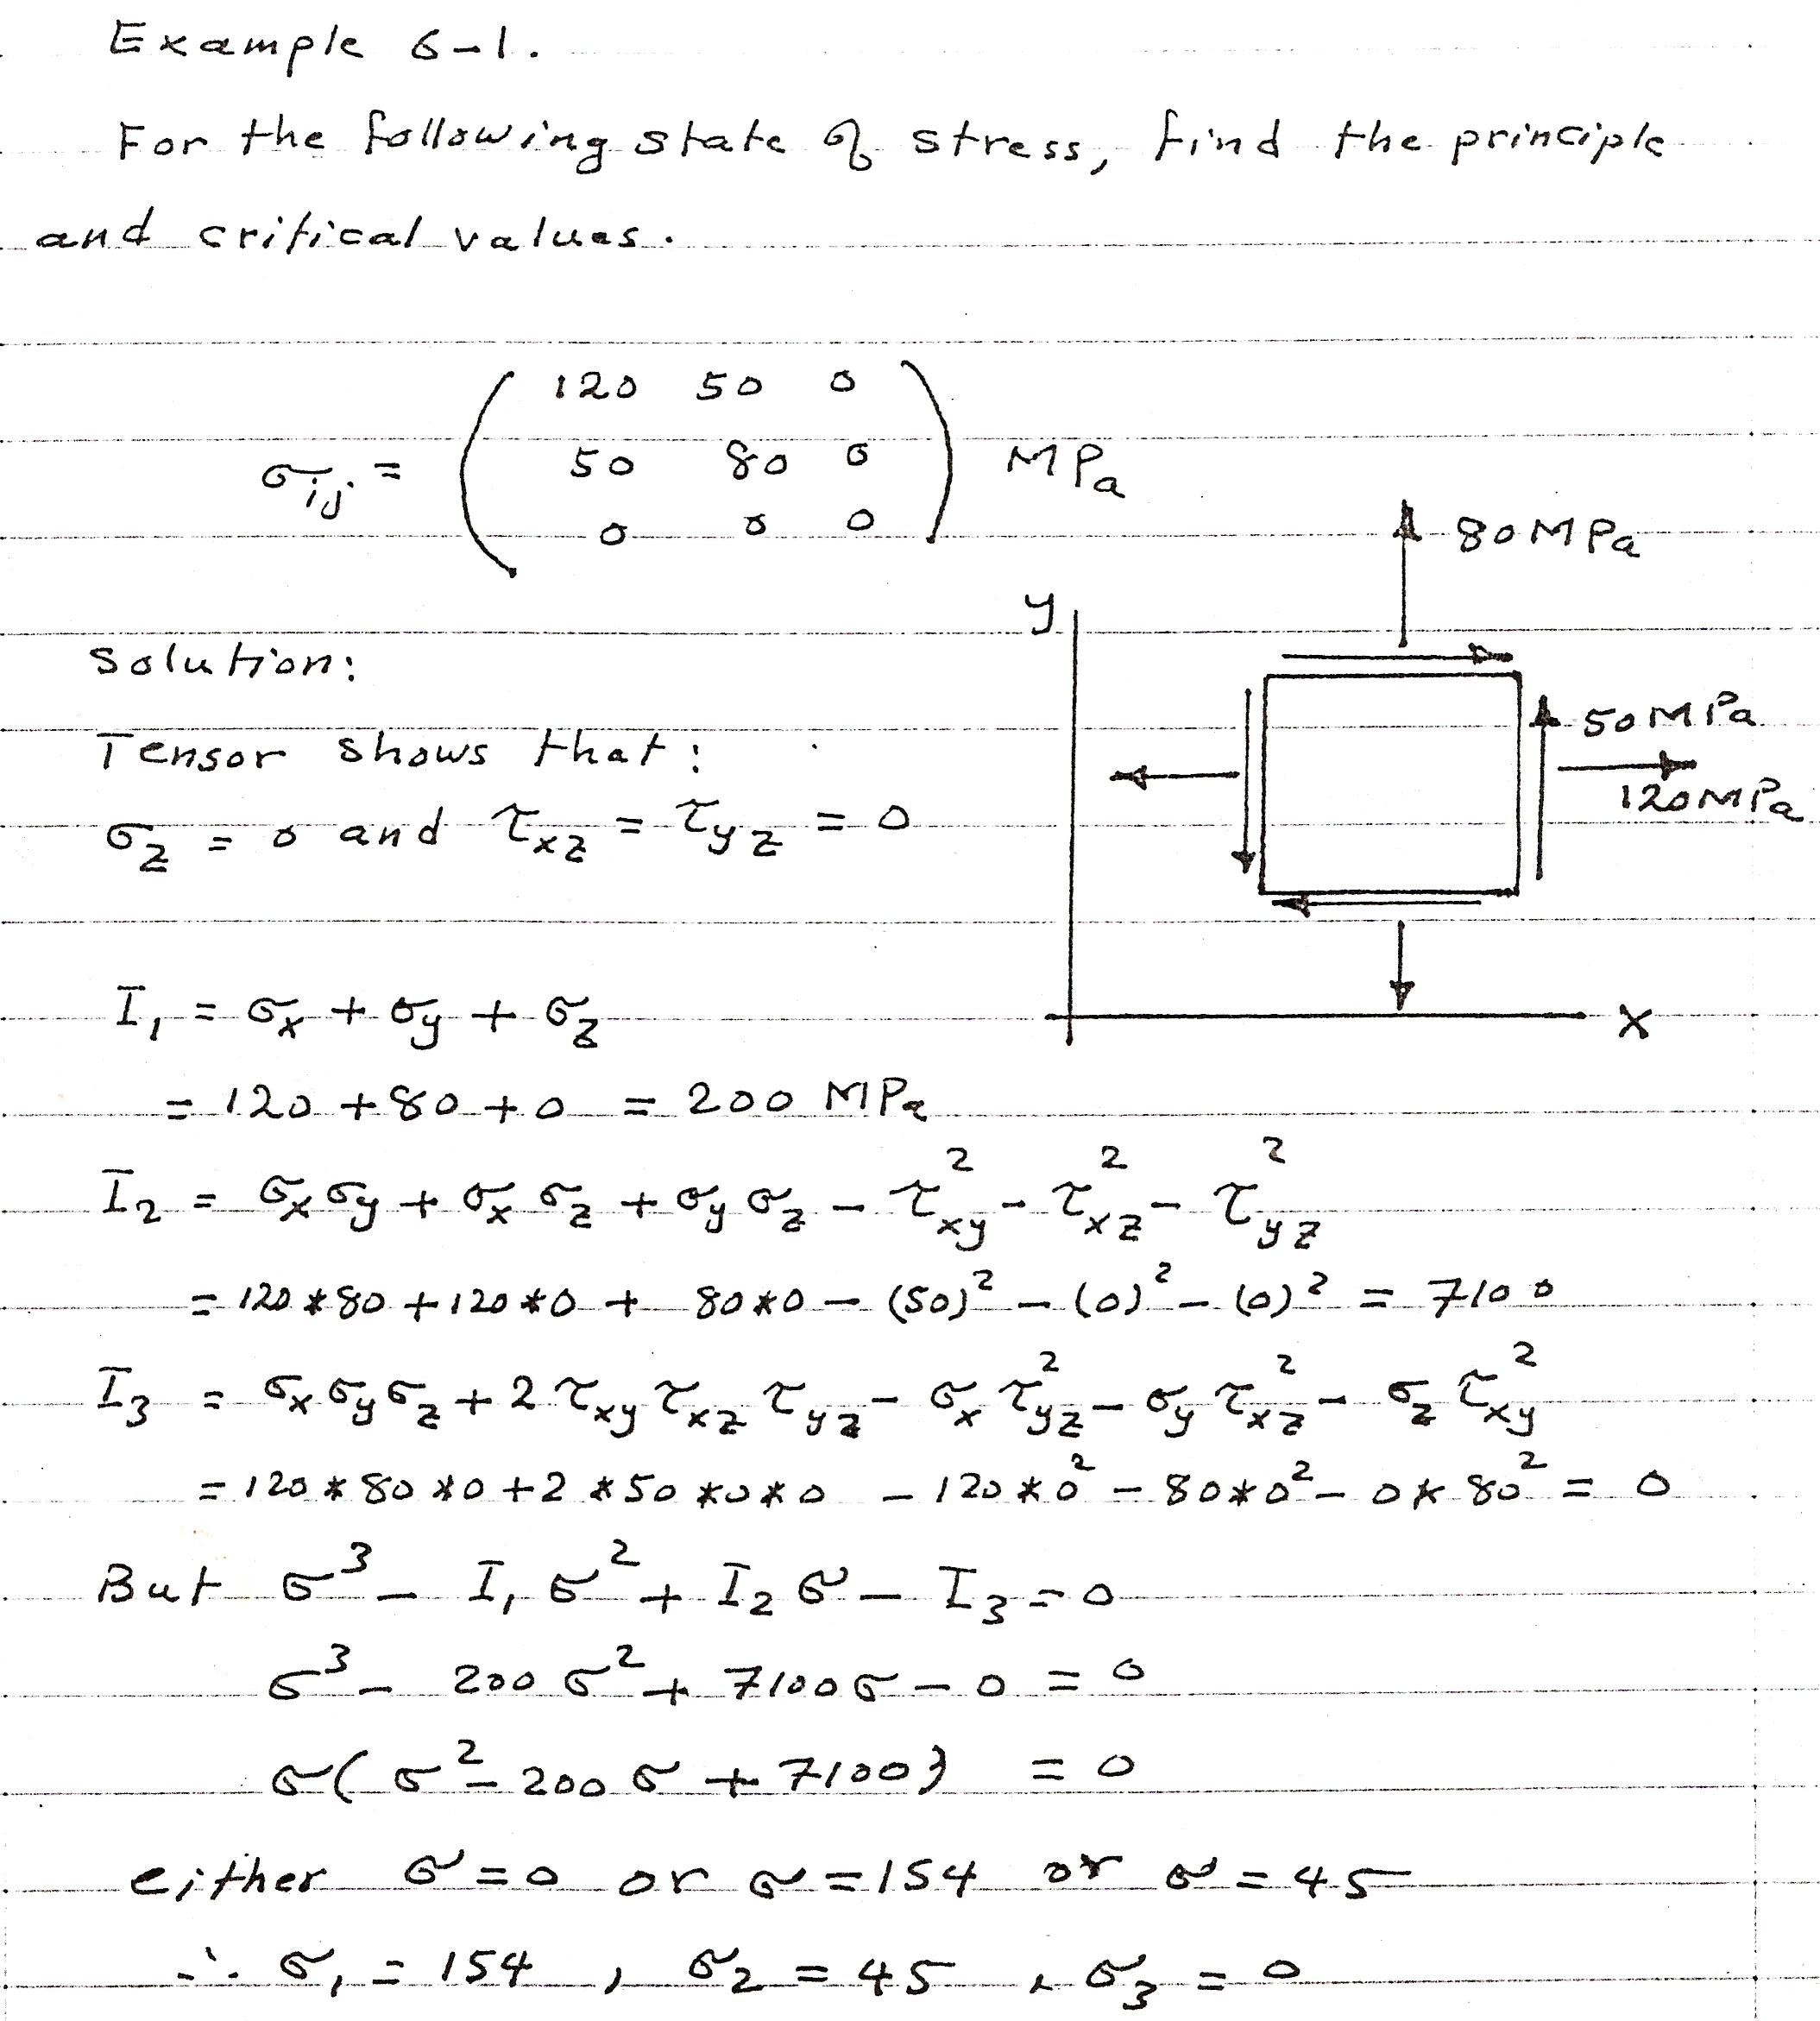 Example 6-1.
For the following state of stress, find the principle
and critical values.
120 50 0
σij = 50 80 0 MPa
0 0 0
80 MPa
y
Solution:
50 MPa
Tensor shows that:
120 MPa
σz = 0 and τxz = τyz = 0
I₁ = σx + σy + σz
x
= 120 + 80 + 0 = 200 MPa
I₂ = σxσy + σxσz + σyσz - τxy² - τxz² - τyz²
= 120*80 + 120*0 + 80*0 - (50)² - (0)² - (0)² = 7100
I₃ = σxσyσz + 2τxyτxzτyz - σxτyz² - σyτxz² - σzτxy²
= 120*80*0 + 2*50*0*0 - 120*0² - 80*0² - 0*80² = 0
But σ³ - I₁σ² + I₂σ - I₃ = 0
σ³ - 200σ² + 7100σ - 0 = 0
σ(σ² - 200σ + 7100) = 0
either σ = 0 or σ = 154 or σ = 45
∴ σ₁ = 154, σ₂ = 45, σ₃ = 0